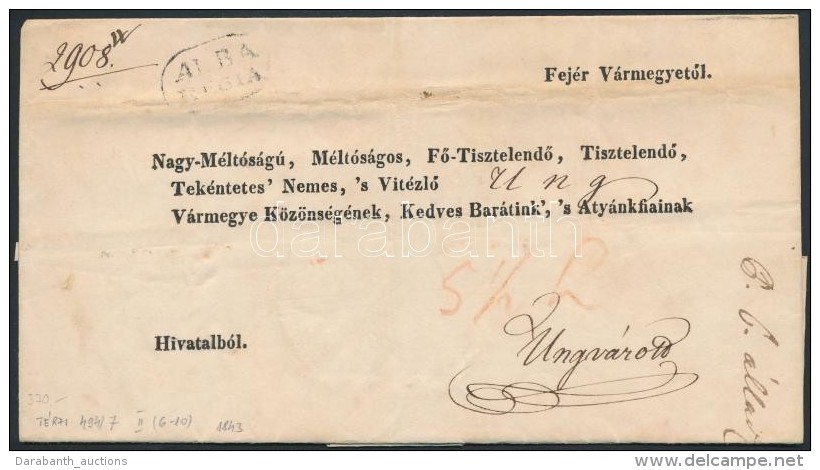 2908.
ALBA
REGIA
Fejér Vármegyetől.
Nagy-Méltóságú, Méltóságos, Fő-Tisztelendő, Tisztelendő,
Tekéntetes' Nemes, 's Vitézló Ung
Vármegye Közönségének, Kedves Barátink', 's Atyánkfiainak
darabanth
Hivatalból.
Ungvárott
320.-
TÉRTI 494/7 II (6-10) 1843
Darabanth_auctions
delcampe.net